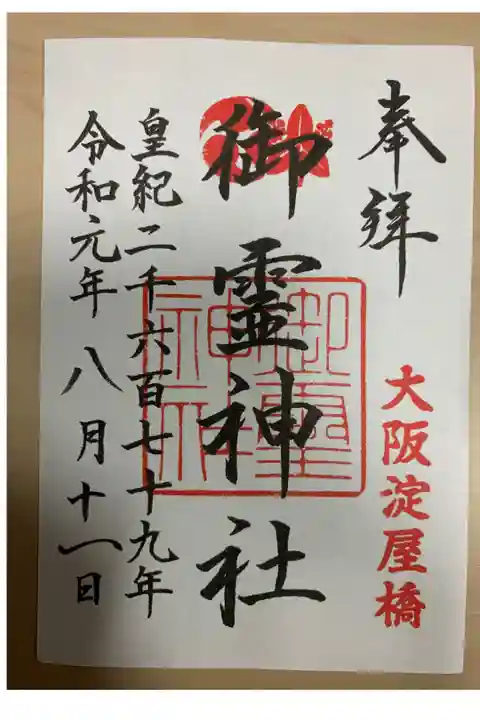 奉拝
大阪淀屋橋
御霊神社
御霊神社
皇紀二千六百七十九年
令和元年八月十一日